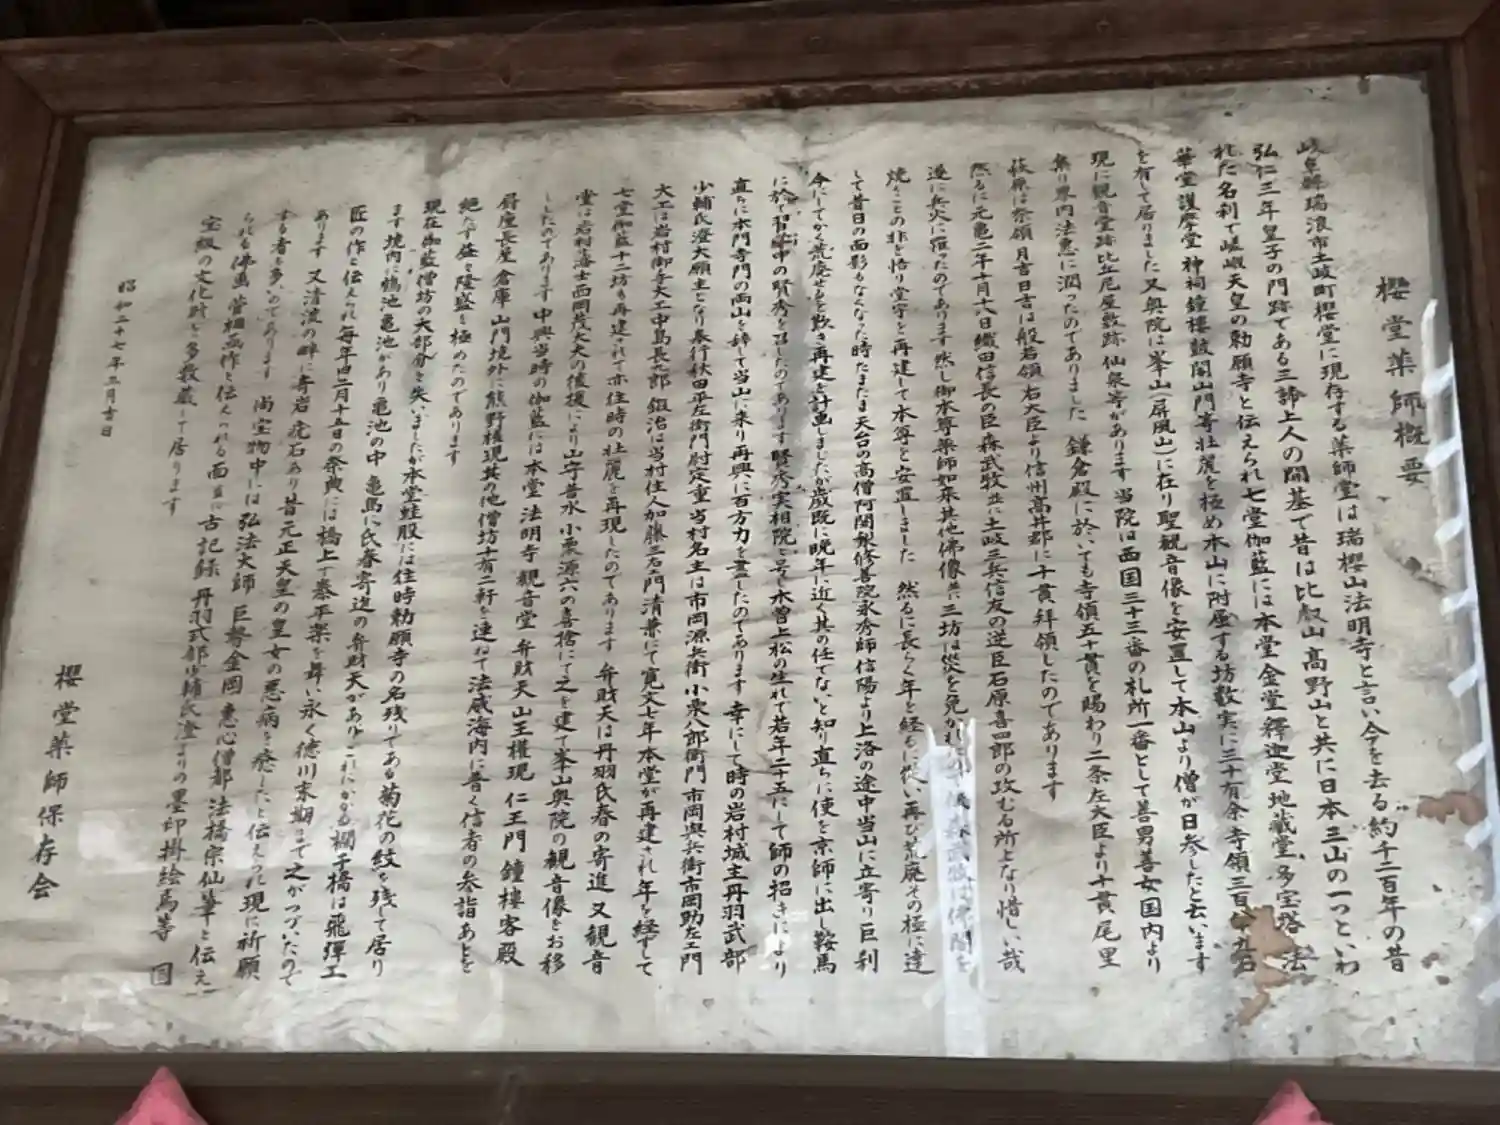 櫻堂薬師概要
岐阜縣瑞浪市土岐町櫻堂に現存する薬師堂は瑞櫻山法明寺と言い今を去る約千二百年の昔
弘仁三年皇子の門跡である三諦上人の開基で昔は比叡山高野山と共に日本三山の一つといわ
れた名刹で嵯峨天皇の勅願寺と伝えられ七堂伽藍には本堂金堂釋迦堂地蔵堂多宝塔法
華堂護摩堂神祠鐘樓鼓閣山門寄壮麗を極め本山に附屬する坊数実に三十有余寺領三百
を有して居りました又奥院は峯山(屏風山)に在り聖観音像を安置して本山より僧が日参したと云います
現に観音堂跡比丘尼屋敷跡仙泉等があります当院は西国三十三番の札所一番として善男善女国内より
集り界内法恵に潤ったのでありました 鎌倉殿に於いても寺領五十貫を賜わり二条左大臣より十貫尾里
萩原は祭領月吉日吉は般若領右大臣より信州高井郡に十貫拜領したのであります
然るに元亀二年十月十八日織田信長の臣森武牧並に土岐三兵信友の逆臣石原喜四郎の攻むる所となり惜しい哉
遂に兵火に罹ったのであります然し御本尊薬師如来其他佛像共三坊は災を免かれ 後森武牧は佛閣を
焼くことの非を悟り堂守を再建して本尊を安置しました 然るに長らく年を経るに従い再び荒廃その極に達
して昔日の面影もなくなった時たまたま天台の高僧阿閦梨修善院永秀師信陽より上洛の途中当山に立寄り巨刹
今にしてかく荒廃せるを歎き再建を計画しましたが歳既に晩年に近く其の任てないと知り直ちに使を京師に出し鞍馬
に於て習学中の賢秀を召したのであります賢秀実相院と号し木曽上松の生れで若年二十五にして師の招きにより
直ちに本門寺門の両山を辞して当山に来り再興に百方力を盡したのであります 幸にして時の岩村城主丹羽武部
少輔氏澄大願主となり奉行秋田平左衛門尉定重当村名主は市岡源兵衛小栗八郎衛門市岡與兵衛市岡助左エ門
大工は岩村御寺大工中島長九郎鍛治は当村住人加藤三右門清兼にて寛文七年本堂が再建され年を経ずして
七堂伽藍十二坊も再建されて亦往時の壮麗を再現したのであります 弁財天は丹羽氏春の寄進又観音
堂は岩村藩士西岡茂太夫の後援により山守普水小栗源六の喜捨にて之を建て峯山奥院の観音像をお移
したのであります中興当時の伽藍には本堂法明寺観音堂弁財天山王權現仁王門鐘樓客殿
厨座長屋倉庫山門境外に熊野權現其の他僧坊十有二軒を連ねて法威海内に普く信者の参詣あとを
絶たず益々隆盛を極めたのであります
現在伽藍僧坊の大部分を失いましたが本堂蛙股には往時勅願寺の名残りである菊花の紋を残して居り
ます境内に鶴池亀池があり亀池の中亀島に氏春寄進の弁財天があり これにかかる欄干橋は飛弾工
匠の作と伝えれ毎年旧二月十五日の祭典には橋上で泰平楽を舞い永く徳川末期まで之がつづいたので
あります 又清流の畔に奇岩虎石あり昔元正天皇の皇女の悪病を癒したと伝えられ現に祈願
する者も多いのであります 尚宝物中には弘法大師巨勢金岡恵心僧都法橋宗仙筆と伝え
られる佛画菅楯画作と伝えられる面並に古記録丹羽式部少輔氏澄よりの墨印掛絵馬等 国
宝級の文化財を多数蔵して居ります
昭和二十七年三月吉日
櫻堂薬師保存会